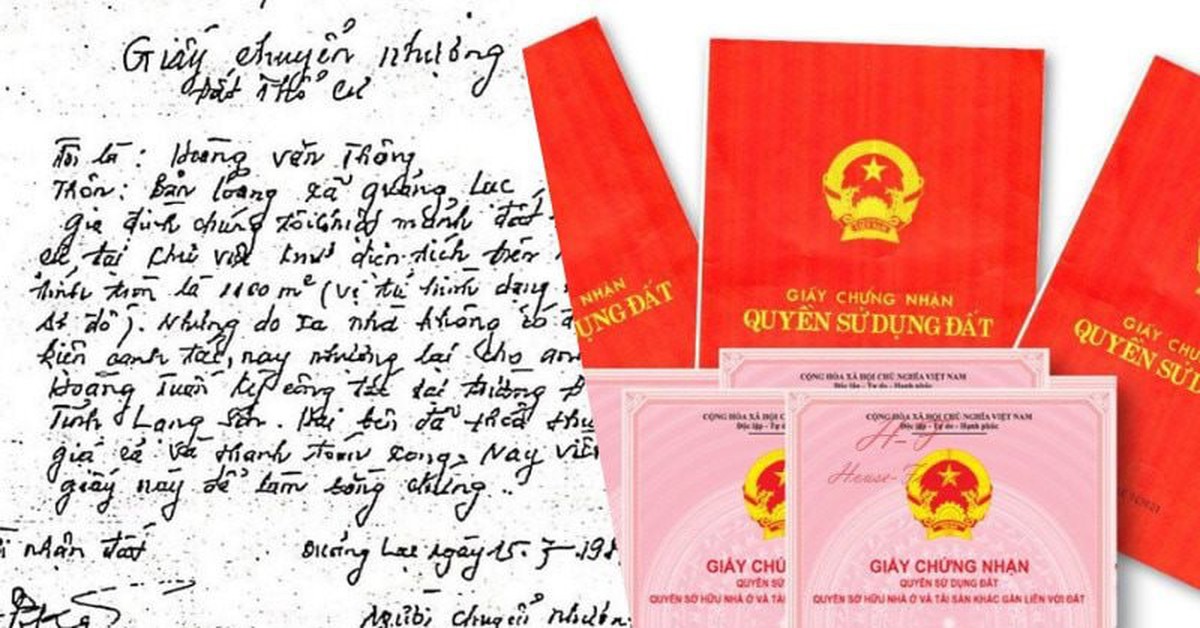 Giấy chuyển nhượng
Đất Thổ cư
Tôi là: Hoàng văn Thông
Thôn: Bản loang xã quảng Lạc
gia đình chúng tôi có mảnh đất
cư tại khu vực diện tích trên
hình tròn là 1100 m² (vị trí hình dạng
sơ đồ). Nhưng do Ta nhà không có
kiện canh tác, nay nhường lại cho anh
Hoàng Tuấn công tác tại trường
Tỉnh Lạng Sơn. Hai bên đã thoả
giá cả và thanh toán xong. Nay viết
giấy này để làm bằng chứng..
nhận đất
Quảng Lạc ngày 15.
Người chuyển nhượng
NHẬN
DỤNG ĐẤT
VIỆT NAM
GIẤY CHỨNG NHẬN
QUYỀN SỬ DỤNG ĐẤT
GIẤY CH
QUYỀN SỬ
CỘNG HÒA XÃ HỘI CHỦ NGHĨA VIỆT NAM
Độc lập - Tự do - Hạnh phúc
CỘNG HÒA XÃ HỘI C
Độc lập - Tự do
GIẤY CHỨ
QUYỀN SỬ
QUYỀN SỞ HỮU NHÀ Ở VÀ TÀI
CỘNG HÒA XÃ HỘI CHỦ NGHĨA VIỆT NAM
Độc lập - Tự do - Hạnh phúc
House
GIẤY CHỨNG NHẬN
QUYỀN SỬ DỤNG ĐẤT
QUYỀN SỞ HỮU NHÀ Ở VÀ TÀI SẢN KHÁC GẮN LIỀN VỚI ĐẤT